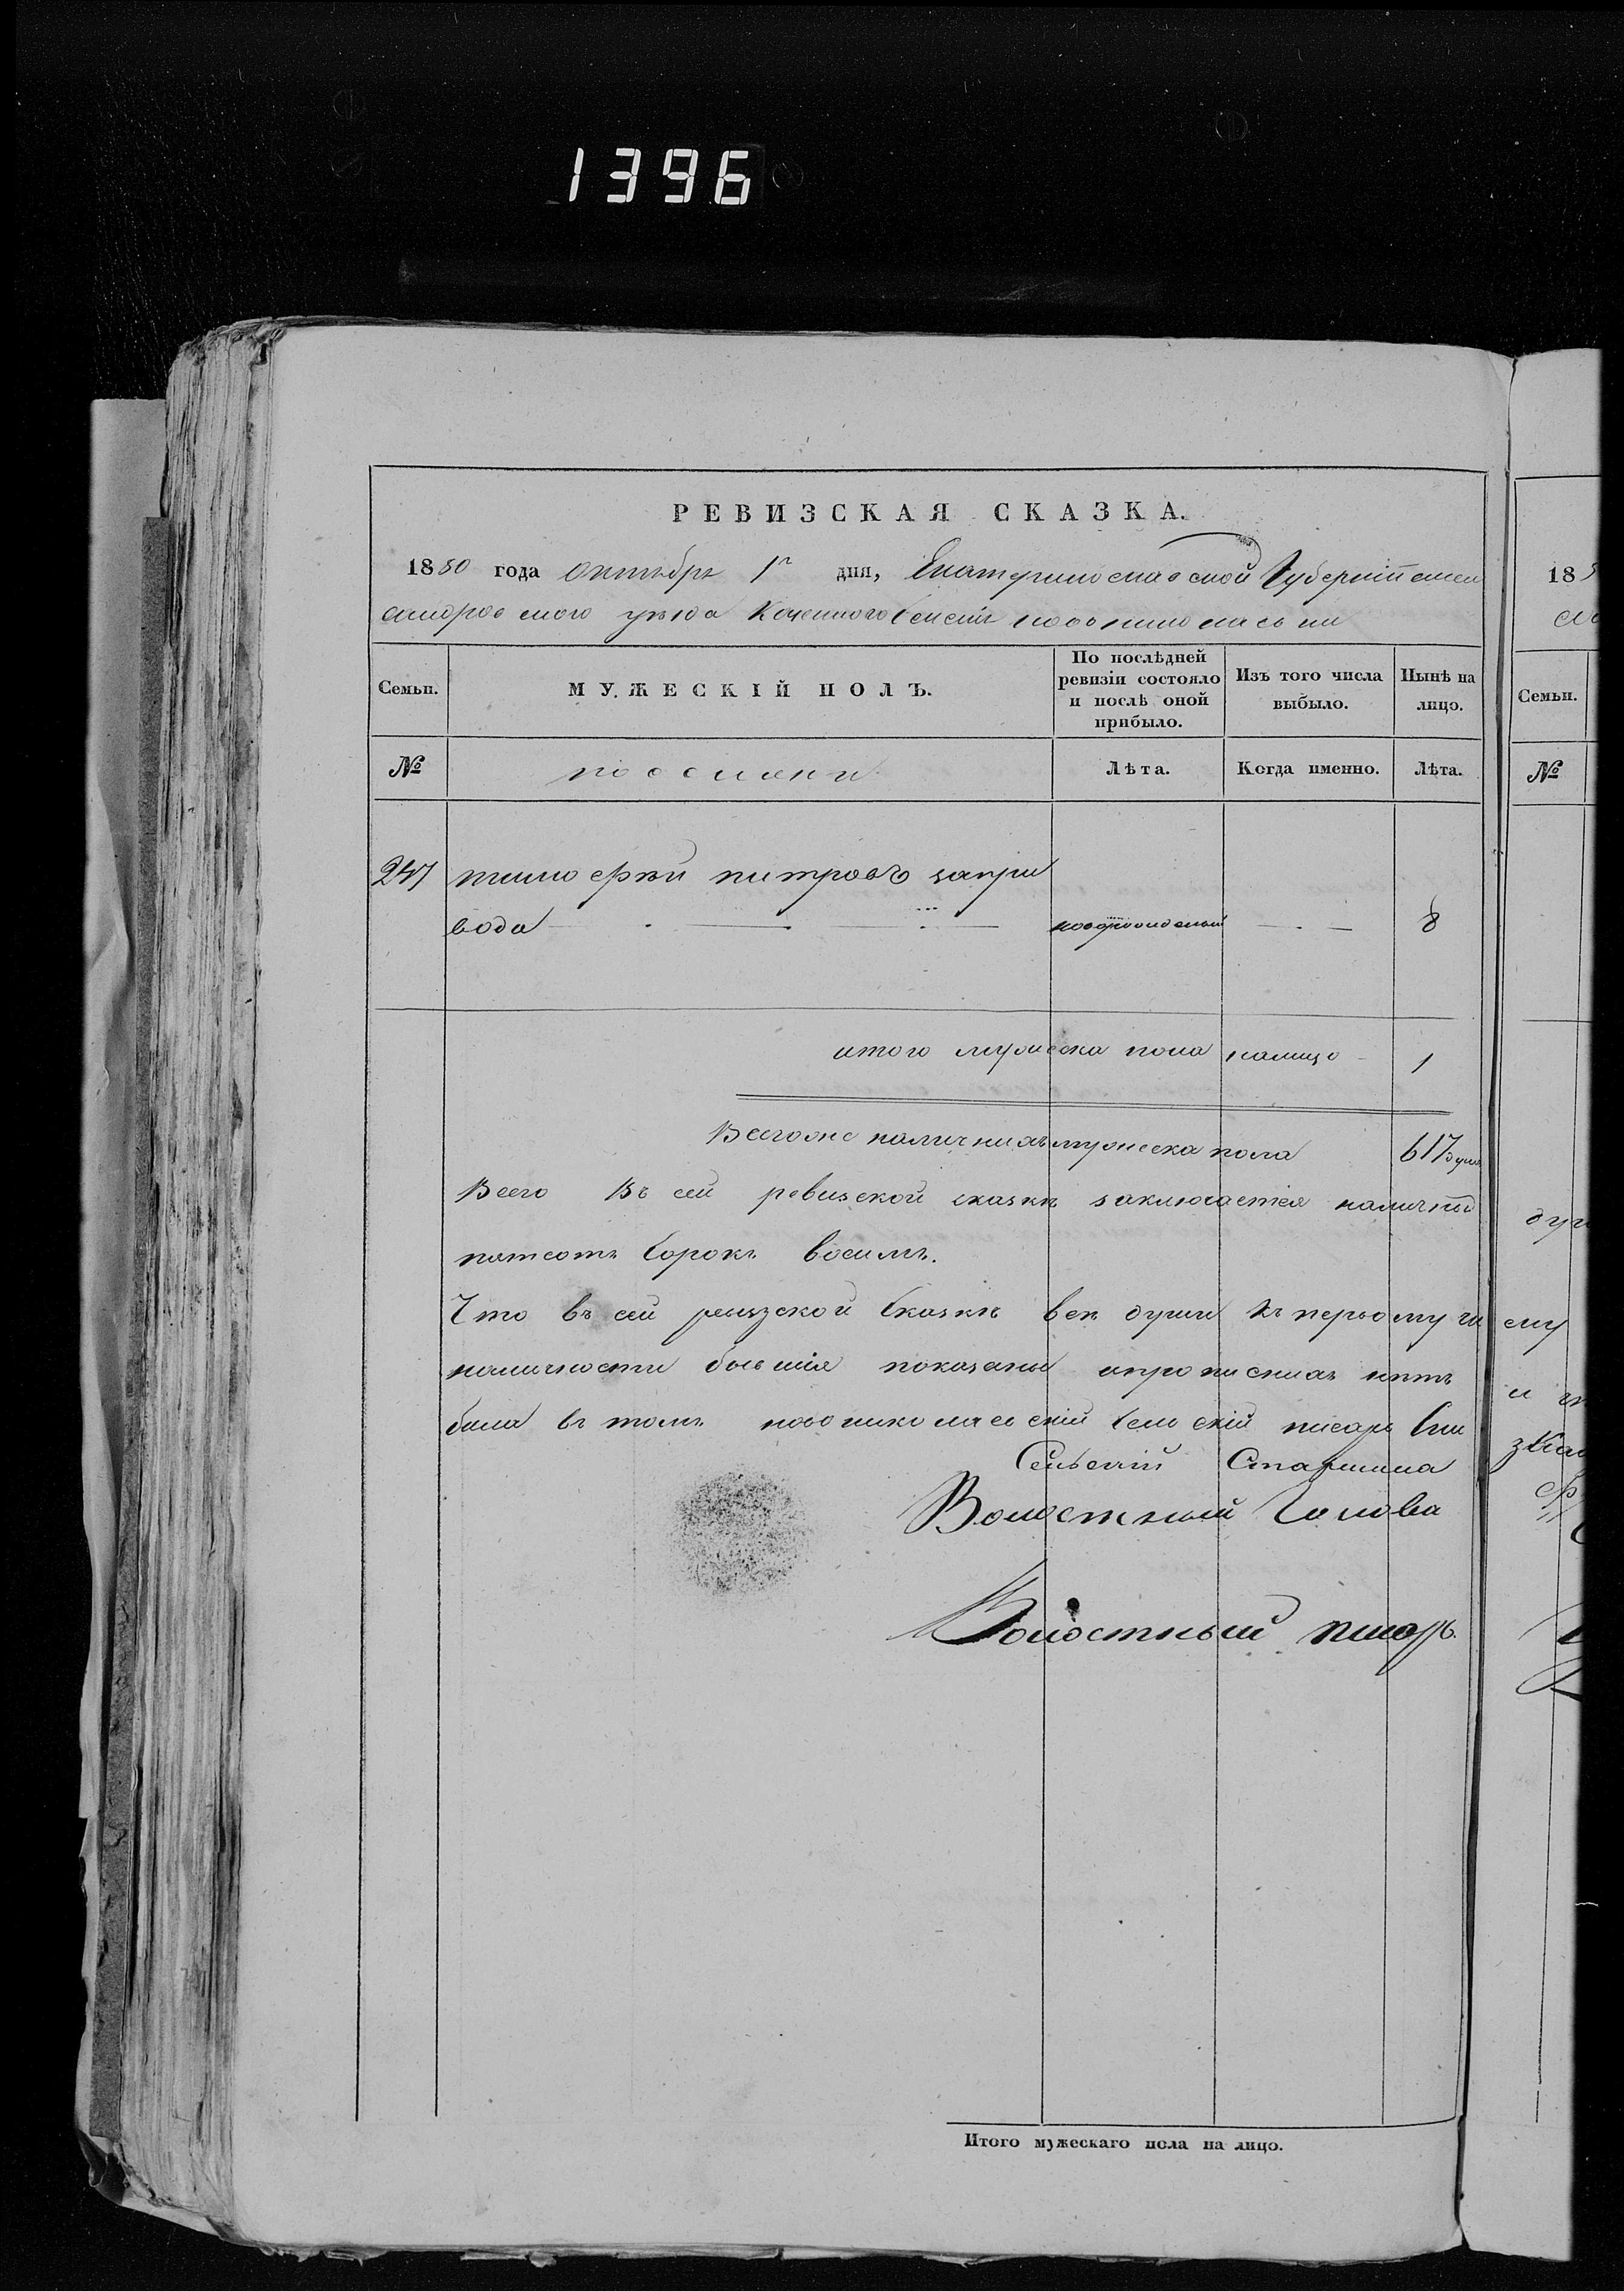 1396
РЕВИЗСКАЯ СКАЗКА.
1850 года октября 1го дня, Екатеринославской Губерніи алек
сандровского уезда Казенного Селенія новониколаевки
18
Семьи.
МУЖЕСКІЙ ПОЛЪ.
По послѣдней ревизіи состояло и послѣ оной прибыло.
Изъ того числа выбыло.
Нынѣ на лицо.
Семьи.
№
поселяни
Лѣта.
Когда именно.
Лѣта.
№
247 тимофей питровъ запри
вода новорожденый 8
итого мужеска пола налицо 1
Всегоже наличнихъ мужеска пола 617 душъ
Всего Въ сей ревизской сказкѣ заключается наличны
пятсотъ Сорокъ восимъ.
Что въ сей ревизской Сказкѣ всѣ души къ первому чи
наличности бывшія показаны ипрописнихъ нѣтъ
въ томъ новониколаевскій Сельскій писарь
Сельскій Старшина
Волостный Голова
Волостный писарь.
Итого мужескаго пола на лицо.